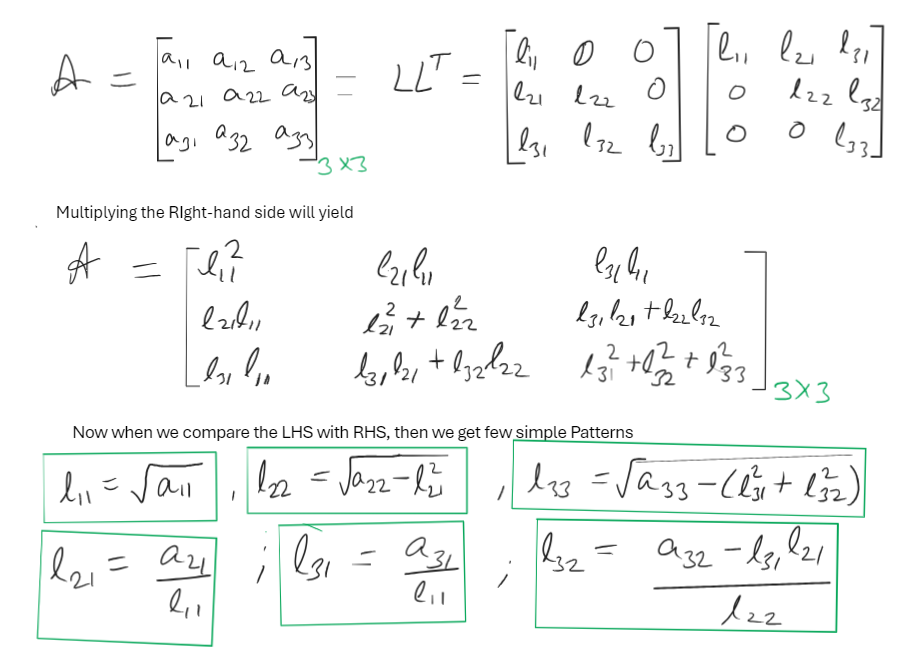 A = [a₁₁ a₁₂ a₁₃; a₂₁ a₂₂ a₂₃; a₃₁ a₃₂ a₃₃]₃ₓ₃ = LLᵀ = [l₁₁ 0 0; l₂₁ l₂₂ 0; l₃₁ l₃₂ l₃₃] [l₁₁ l₂₁ l₃₁; 0 l₂₂ l₃₂; 0 0 l₃₃]
Multiplying the RIght-hand side will yield
A = [l₁₁² l₂₁l₁₁ l₃₁l₁₁;
l₂₁l₁₁ l₂₁² + l₂₂² l₃₁l₂₁ + l₂₂l₃₂;
l₃₁l₁₁ l₃₁l₂₁ + l₃₂l₂₂ l₃₁² + l₃₂² + l₃₃²]₃ₓ₃
Now when we compare the LHS with RHS, then we get few simple Patterns
l₁₁ = √a₁₁ , l₂₂ = √(a₂₂ − l₂₁²) , l₃₃ = √(a₃₃ − (l₃₁² + l₃₂²))
l₂₁ = a₂₁/l₁₁ ; l₃₁ = a₃₁/l₁₁ ; l₃₂ = (a₃₂ − l₃₁l₂₁)/l₂₂